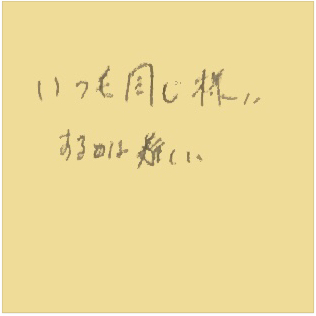 いつも同じ様に
するのは難しい